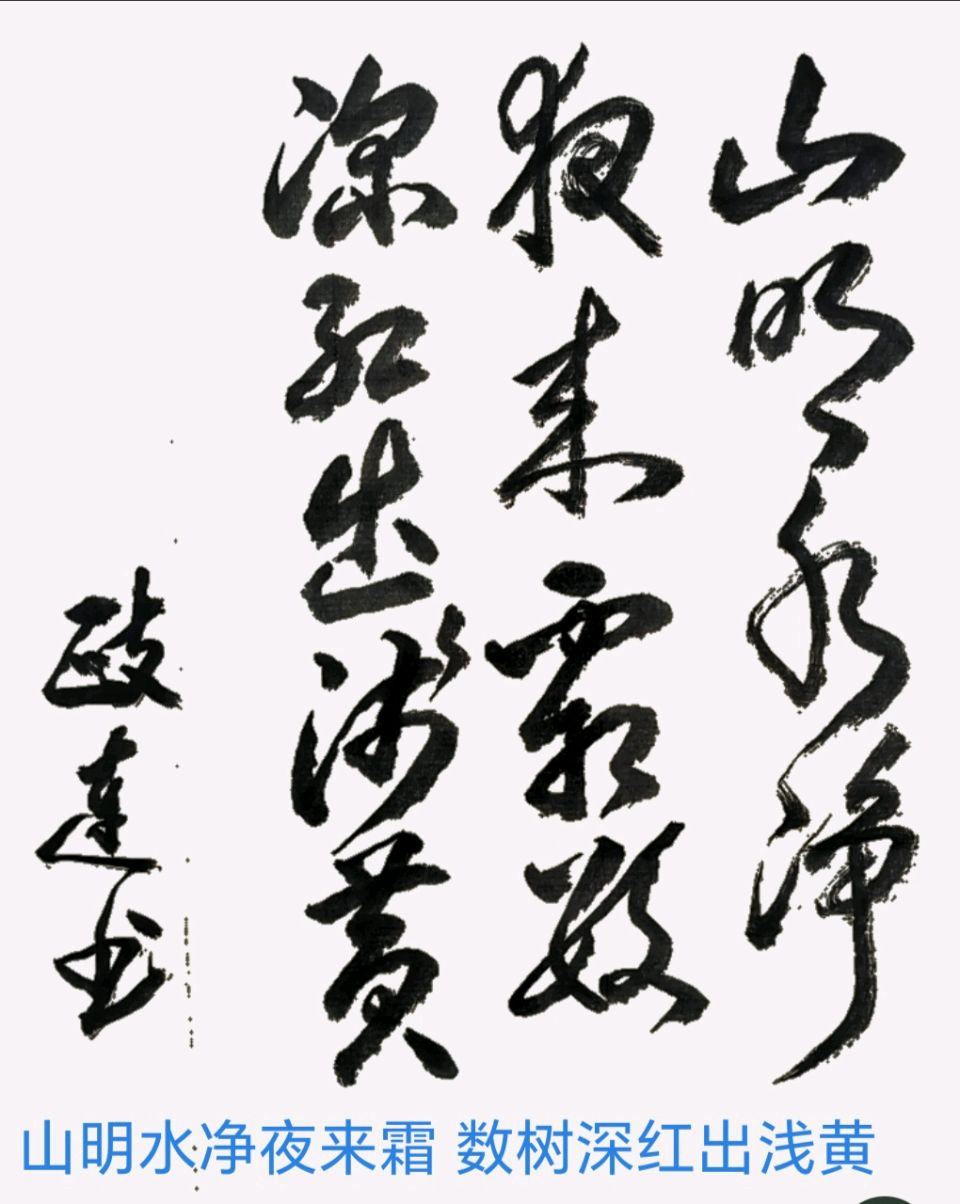 山明水净
夜来霜数
深红出浅黄
達书
山明水净夜来霜 数树深红出浅黄